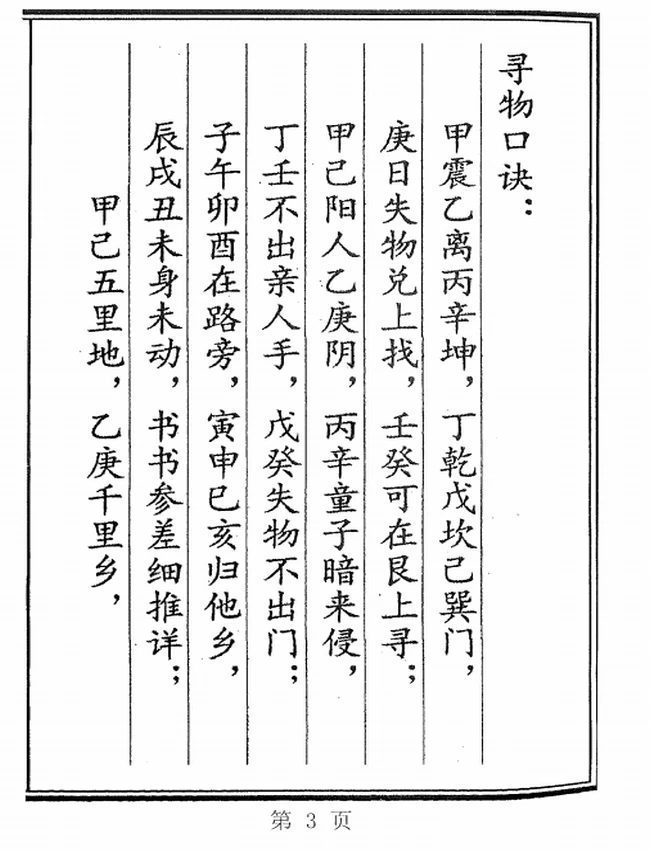 寻物口诀：
甲震乙离丙辛坤，丁乾戊坎己巽门，
庚日失物兑上找，壬癸可在艮上寻；
甲己阳人乙庚阴，丙辛童子暗来侵，
丁壬不出亲人手，戊癸失物不出门；
子午卯酉在路旁，寅申巳亥归他乡，
辰戌丑未身未动，书书参差细推详；
甲己五里地，乙庚千里乡，
第 3 页